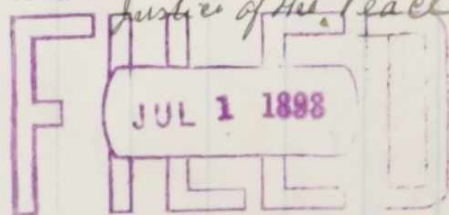 Justice of the Peace
FILED
JUL 1 1898